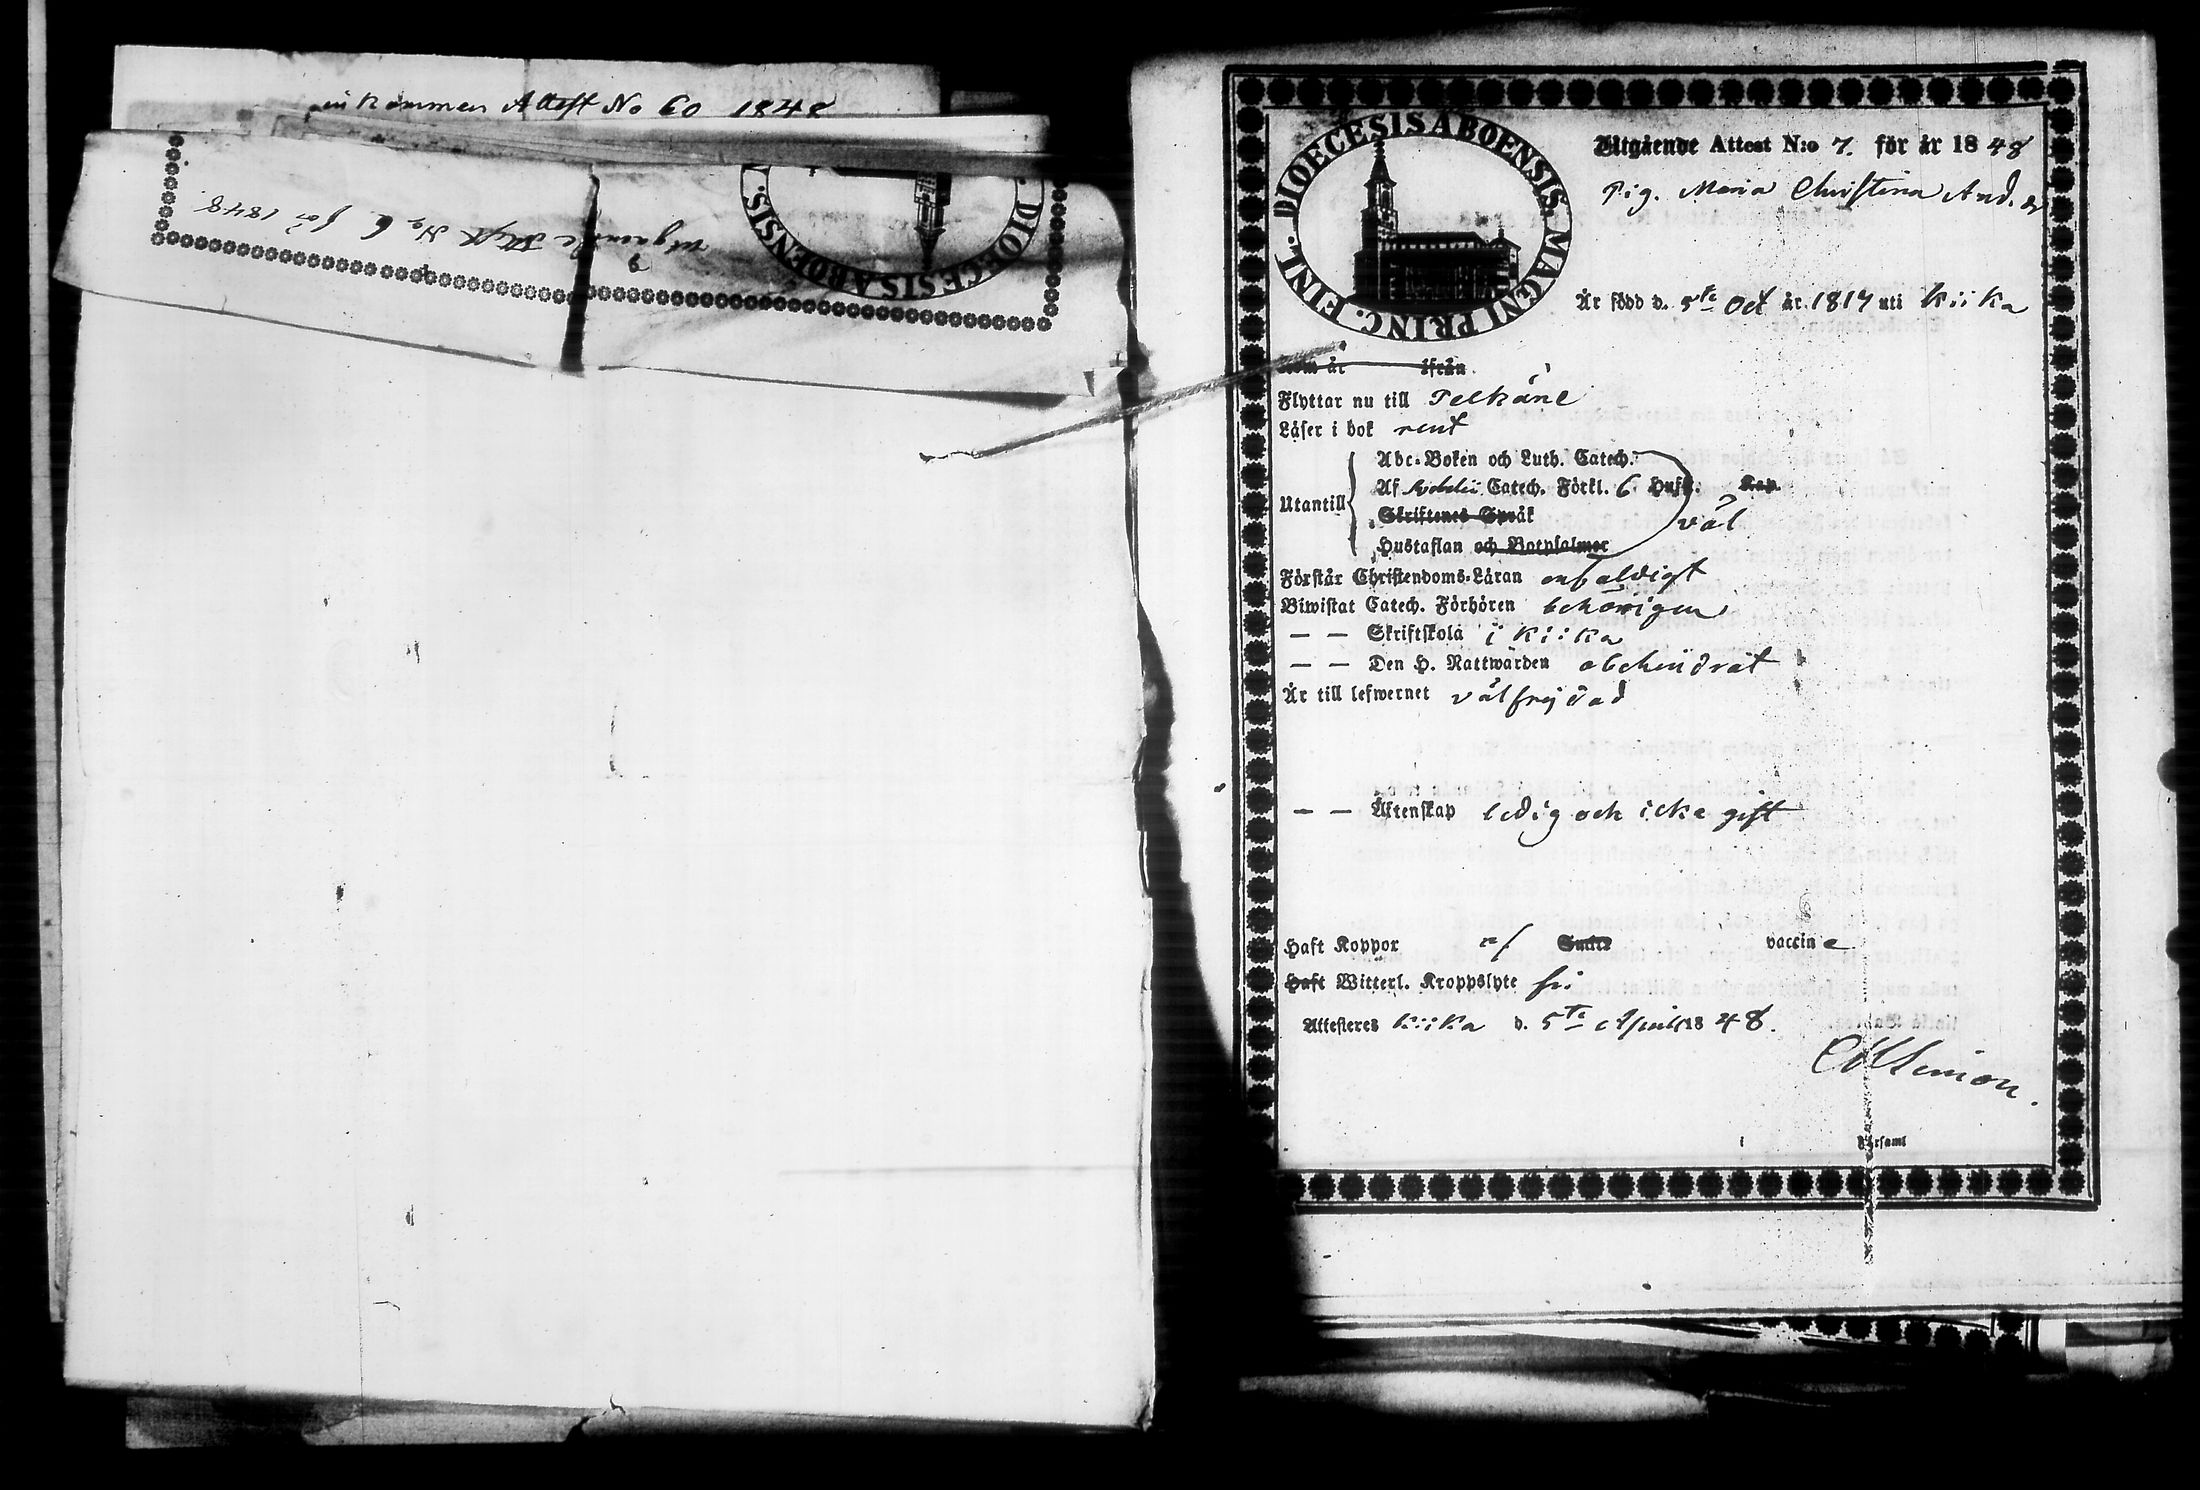 inkommen Attest No 60 1848
utgående Att. No 6 för 1848.
DIOECESIS ABOENSIS
DIOECESIS ABOENSIS. MAGNI PRINC. FINL.
Utgående Attest N:o 7. för år 1848
Pig. Maria Christina And. dr
Är född d. 5te Oct år 1817 uti Kiika
Kom år ifrån
Flyttar nu till Pelkäne
Läser i bok rent
Abc-Boken och Luth. Catech.
Af Catech. Förkl. 6 Hufst. Kap.
Utantill
Skriftenes Språk
väl
Hustaflan och Botpsalmer
Förstår Christendoms-Läran enfaldigt
Biwistat Catech. Förhören behörigen
— — Skriftskola i Kiika
— — Den H. Nattwarden obehindrat
Är till lefwernet välfrejdad
— — Äktenskap ledig och icke gift
Haft Koppor vaccine
Haft Witterl. Kroppslyte fri
Attesteras Kiika d. 5te April 1848.
Församl